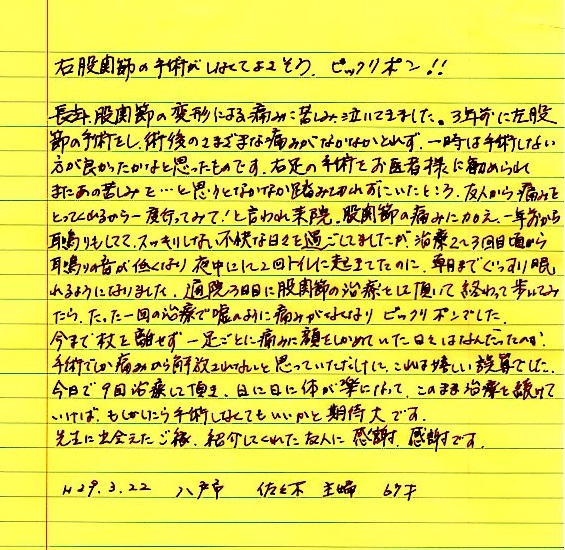 右股関節の手術がしなくてよさそう、ビックリポン!!
長年、股関節の変形による痛みに苦しみ泣いてきました。3年前に左股
節の手術をし、術後のさまざまな痛みがなかなかとれず、一時は手術しない
方が良かったかなと思ったものです。右足の手術をお医者様に勧められ
またあの苦しみを…と思うとなかなか踏み切れずにいたところ、友人から痛みを
とってくれるから一度行ってみて!と言われ来院。股関節の痛みに加え、一年前から
耳鳴りもしてて、スッキリしない不快な日々を過ごしてましたが治療2〜3回目頃から
耳鳴りの音が低くなり夜中に1〜2回トイレに起きてたのに、朝までぐっすり眠
れるようになりました。通院3日目に股関節の治療をして頂いて終わって歩いてみ
たら、たった一回の治療で嘘のように痛みがなくなりビックリポンでした。
今まで杖を離せず一足ごとに痛みに顔をしかめていた日々はなんだったのか。
手術でしか痛みから解放されないと思っていただけに、これは嬉しい誤算でした。
今日で9回治療して頂き、日に日に体が楽になって、このまま治療を続けて
いけば、もしかしたら手術しなくてもいいかと期待大です。
先生に出会えたご縁、紹介してくれた友人に感謝、感謝です。
H29.3.22 八戸市 佐々木 主婦 67才